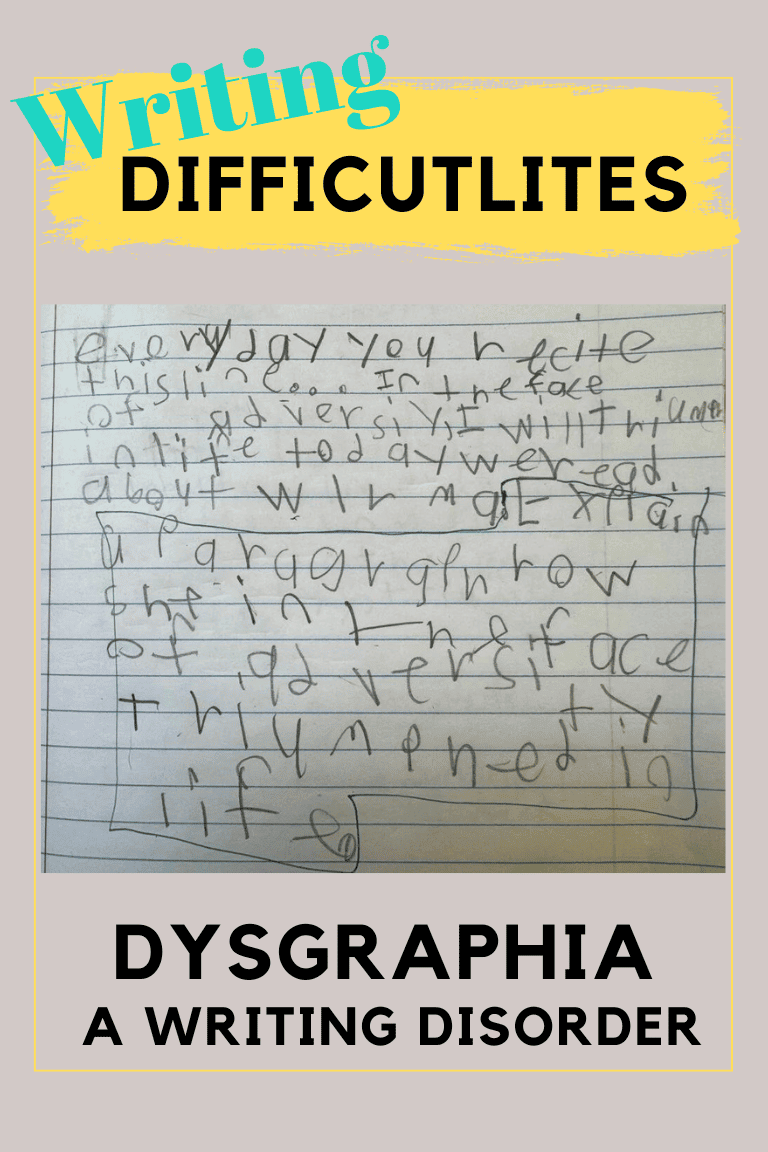 Writing
DIFFICUTLITES
everyday you recite
this line... In the face
of adversiy, I will thrium
in life today we read.
about Wlrma Explain
in Paragraph how
she in the face
of adversity
triumphed in
life
DYSGRAPHIA
A WRITING DISORDER